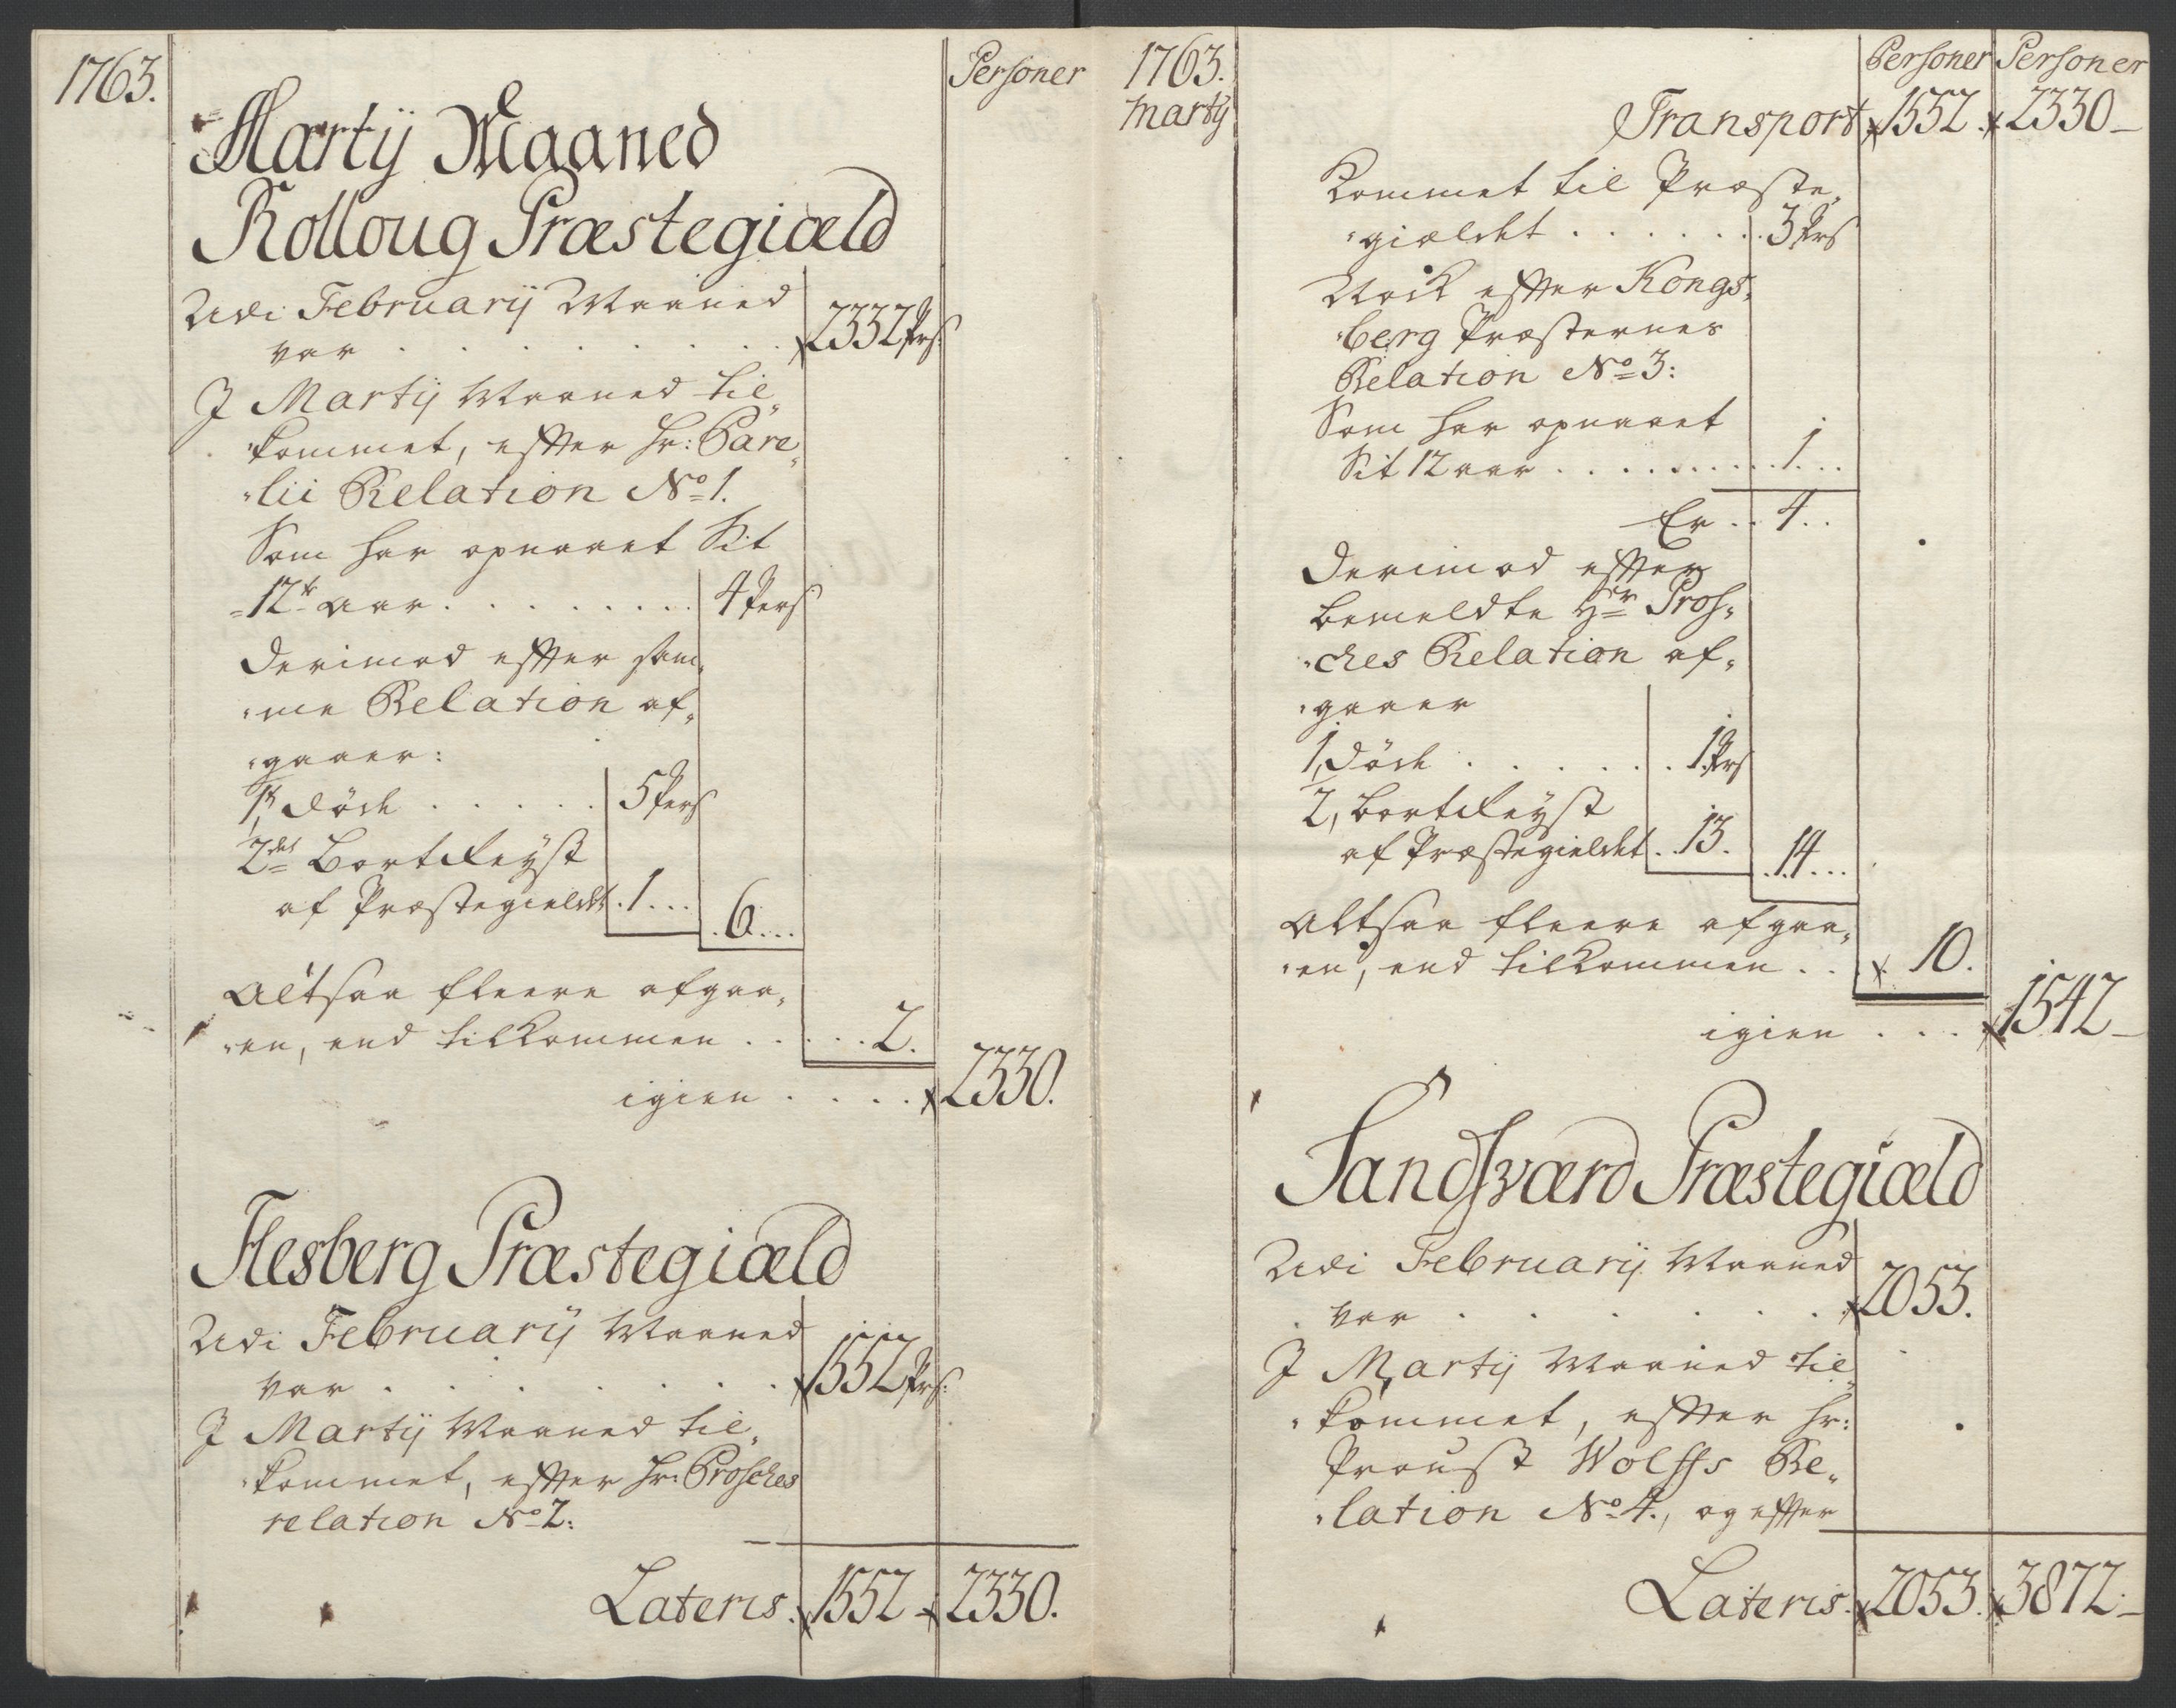 1763.
Personer
Martij Maaned
Rolloug Præstegiæld
Udi Februarij Maaned
var . . . . . . . . 2332 Prs:
J Martij Maaned til„
„kommet, efter Hr: Pare„
„lii Relation No 1.
Som har opnaaet Sit
„12te Aar . . . . . . . . 4 Pers:
Derimod efter sam„
„me Relation af„
„gaaer:
1, Døde . . . . . 5 Pers
2det Bortreyst
af Præstegieldet . 1 . . . 6 . . .
Altsaa fleere afgaa„
„en, end tilkommen . . . . . 2.
igien . . . . 2330.
Flesberg Præstegiæld
Udi Februarij Maaned
var . . . . . . . . 1552 Prs:
J Martij Maaned til„
„kommet, efter Hr: Prosches
relation No 2:
Lateris. 1552 2330.
1763.
Martij
Personer Personer
Transport 1552. 2330_
Kommet til Præste„
„gieldet . . . . . . . 3 Prs
Nock efter Kongs„
„berg Præsternes
Relation No 3:
Som har opnaaet
Sit 12 aar . . . . . . . . . 1 . . .
Er . . 4 . .
Derimod efter
bemeldte Hr Pros„
„ches Relation af„
„gaaer
1, Døde . . . . . . . 1 Prs
2, bortreyst
af Præstegieldet . . 13. . 14 . . .
Altsaa fleere afgaa„
„en, end tilkommen . . . . 10.
igien . . . . 1542_
Sandsværd Præstegiæld
Udi Februarij Maaned
var . . . . . . . 2053.
J Martij Maaned til„
„kommet, efter Hr:
Proust Wolffs Re„
„lation No 4., og efter
Lateris. 2053. 3872._